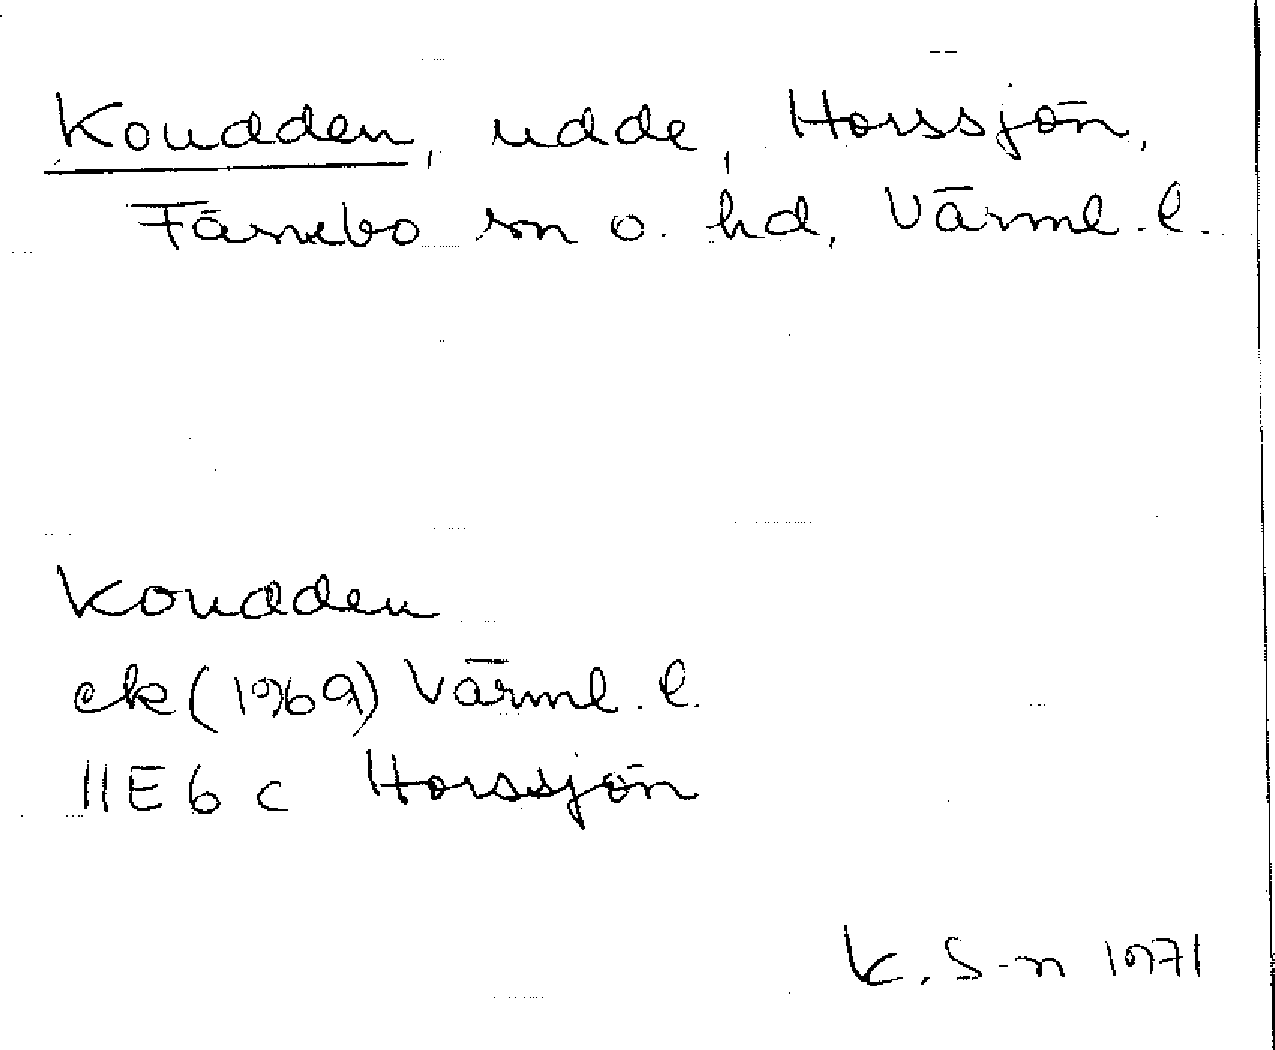 Koudden, udde, Horssjön,
Färnebo sn o. hd, Värml. l.
Koudden
ek (1969) Värml. l.
11E 6 c Horssjön
K. S-n 1971